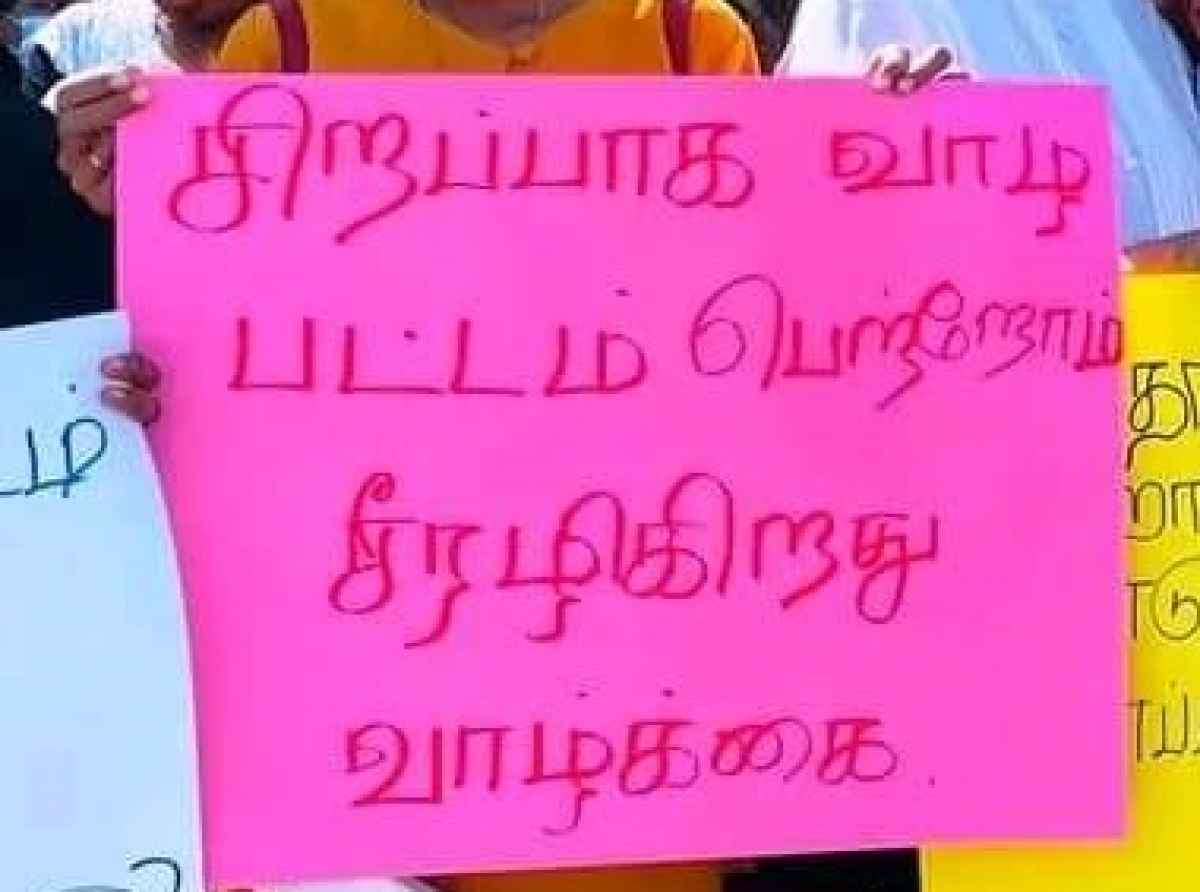 சிறப்பாக வாழ
பட்டம் பெற்றோம்
சீரழிகிறது
வாழ்க்கை.